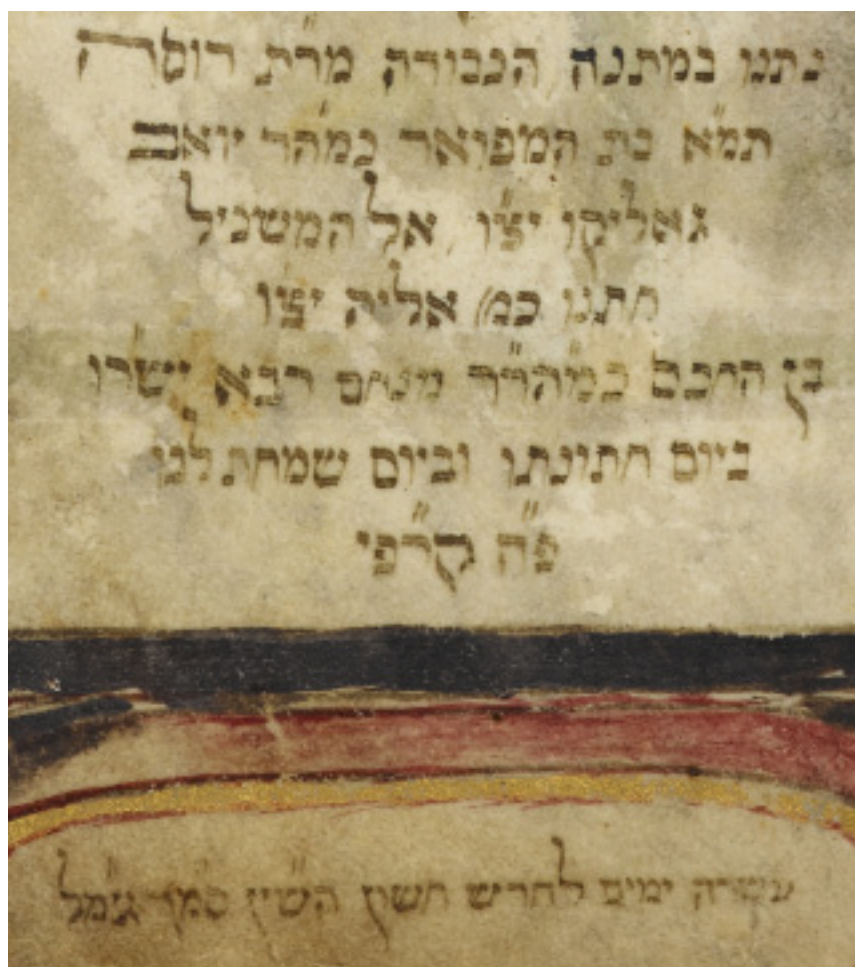 נתנו במתנה הגבורה מרת רוסה
תמ״א בת המפואר כמהר יואב
גאליקו יצ״ו אל המשכיל
חתנו כמ׳ אליה יצ״ו
בן החכם כמהר״ר מנחם רבא ישרו
ביום חתונתו וביום שמחת לבו
פ״ה קר״פי
עשרה ימים לחדש חשון הש״ין סמך גימל